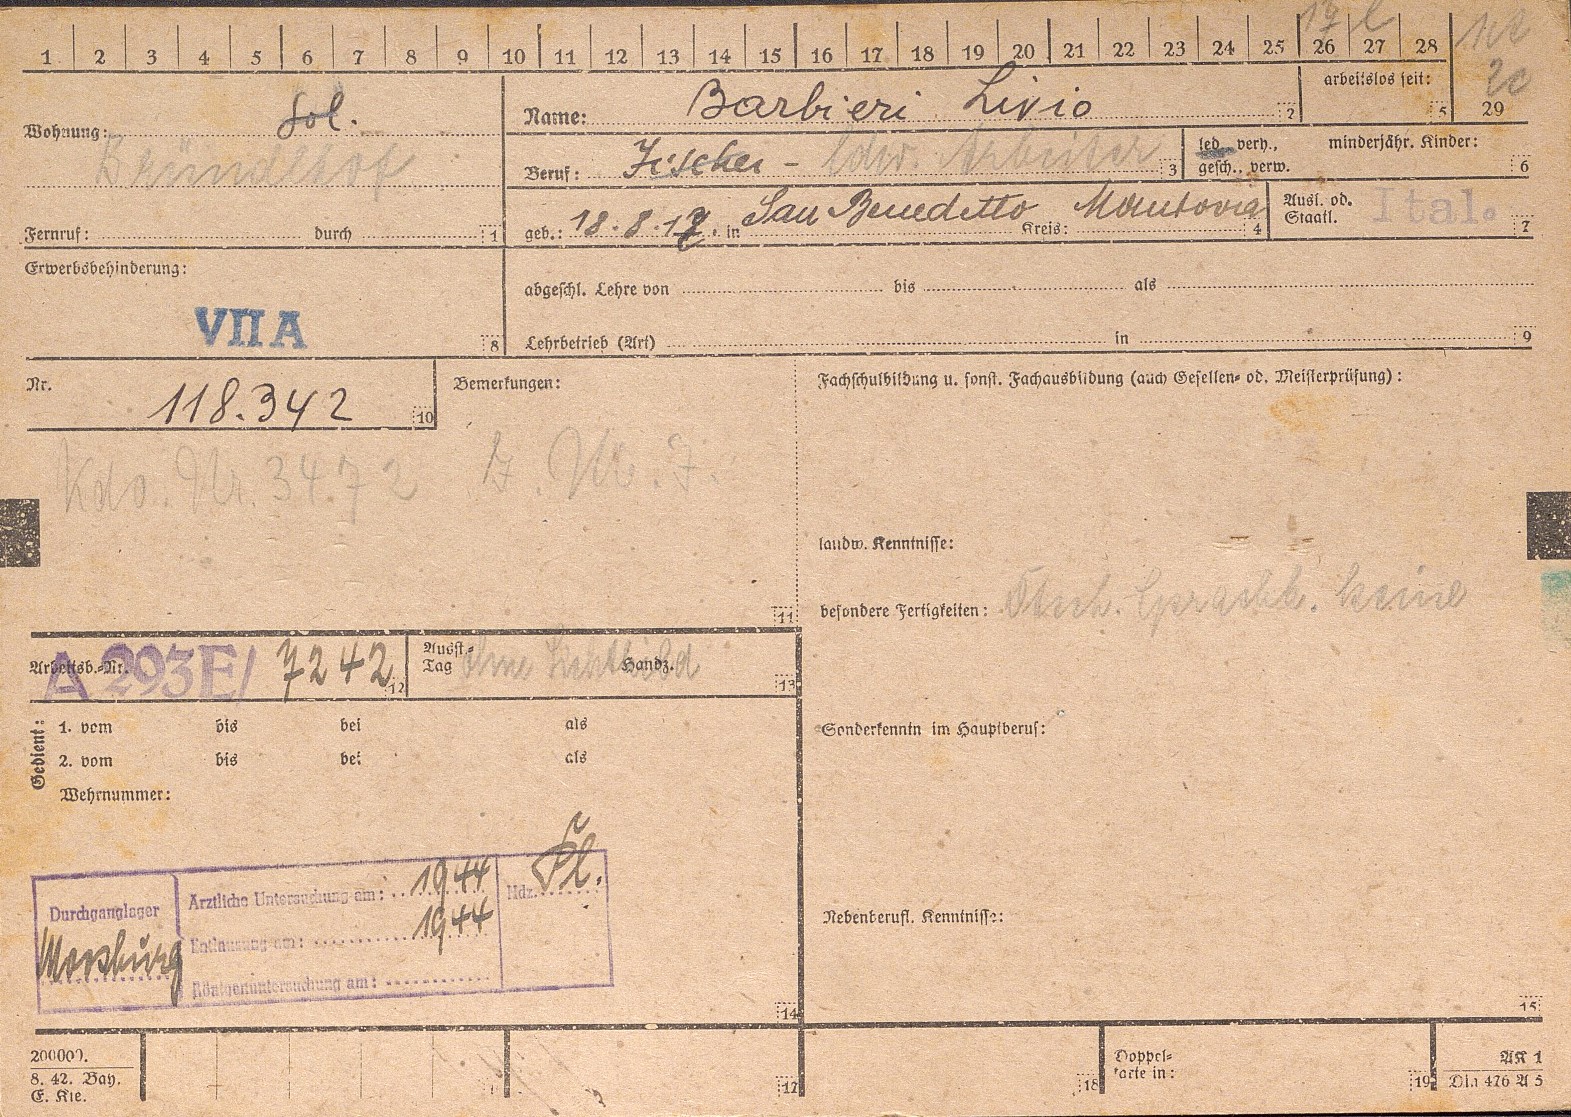 1 2 3 4 5 6 7 8 9 10 11 12 13 14 15 16 17 18 19 20 21 22 23 24 25 26 27 28 29
Wohnung: sol.
Bründlhof
Fernruf: durch 1
Name: Barbieri Livio 2
arbeitslos seit: 5
Beruf: Fischer - ldw. Arbeiter 3
led. verh.,
gesch., verw.
minderjähr. Kinder: 6
geb.: 18.8.17. in San Benedetto Kreis: Mantova 4
Ausl. od.
Staatl. Ital. 7
Erwerbsbehinderung:
VII A 8
abgeschl. Lehre von bis als
Lehrbetrieb (Art) in 9
Nr. 118.342 10
Bemerkungen:
Fachschulbildung u. sonst. Fachausbildung (auch Gesellen- od. Meisterprüfung):
Kdo. Nr. 3472
11
landw. Kenntnisse:
besondere Fertigkeiten: Dtsch. Sprachk. keine
Arbeitsb.-Nr. A 293E/ 7242 12
Ausst.-
Tag ohne Lichtbild Handz. 13
Gedient:
1. vom bis bei als
2. vom bis bei als
Wehrnummer:
Sonderkenntn im Hauptberuf:
Durchganglager
Moosburg
Ärztliche Untersuchung am: 1944
Entlausung am: 1944
Röntgenuntersuchung am:
Hdz.
14
Nebenberufl. Kenntnisse:
15
200000.
8. 42. Bay.
E. Kie.
17
18
Doppel-
karte in: 19
AK 1
Din 476 A 5